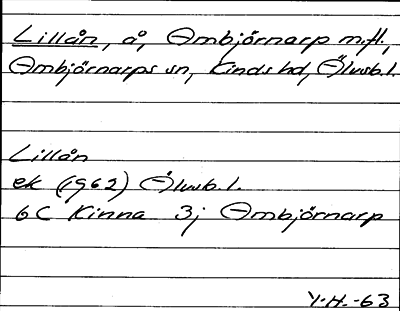 Lillån, å, Ambjörnarp m.fl.,
Ambjörnarps sn, Kinds hd, Älvsb. l.
Lillån
ek (1962) Älvsb. l.
6C Kinna 3j Ambjörnarp
Y.H. -63